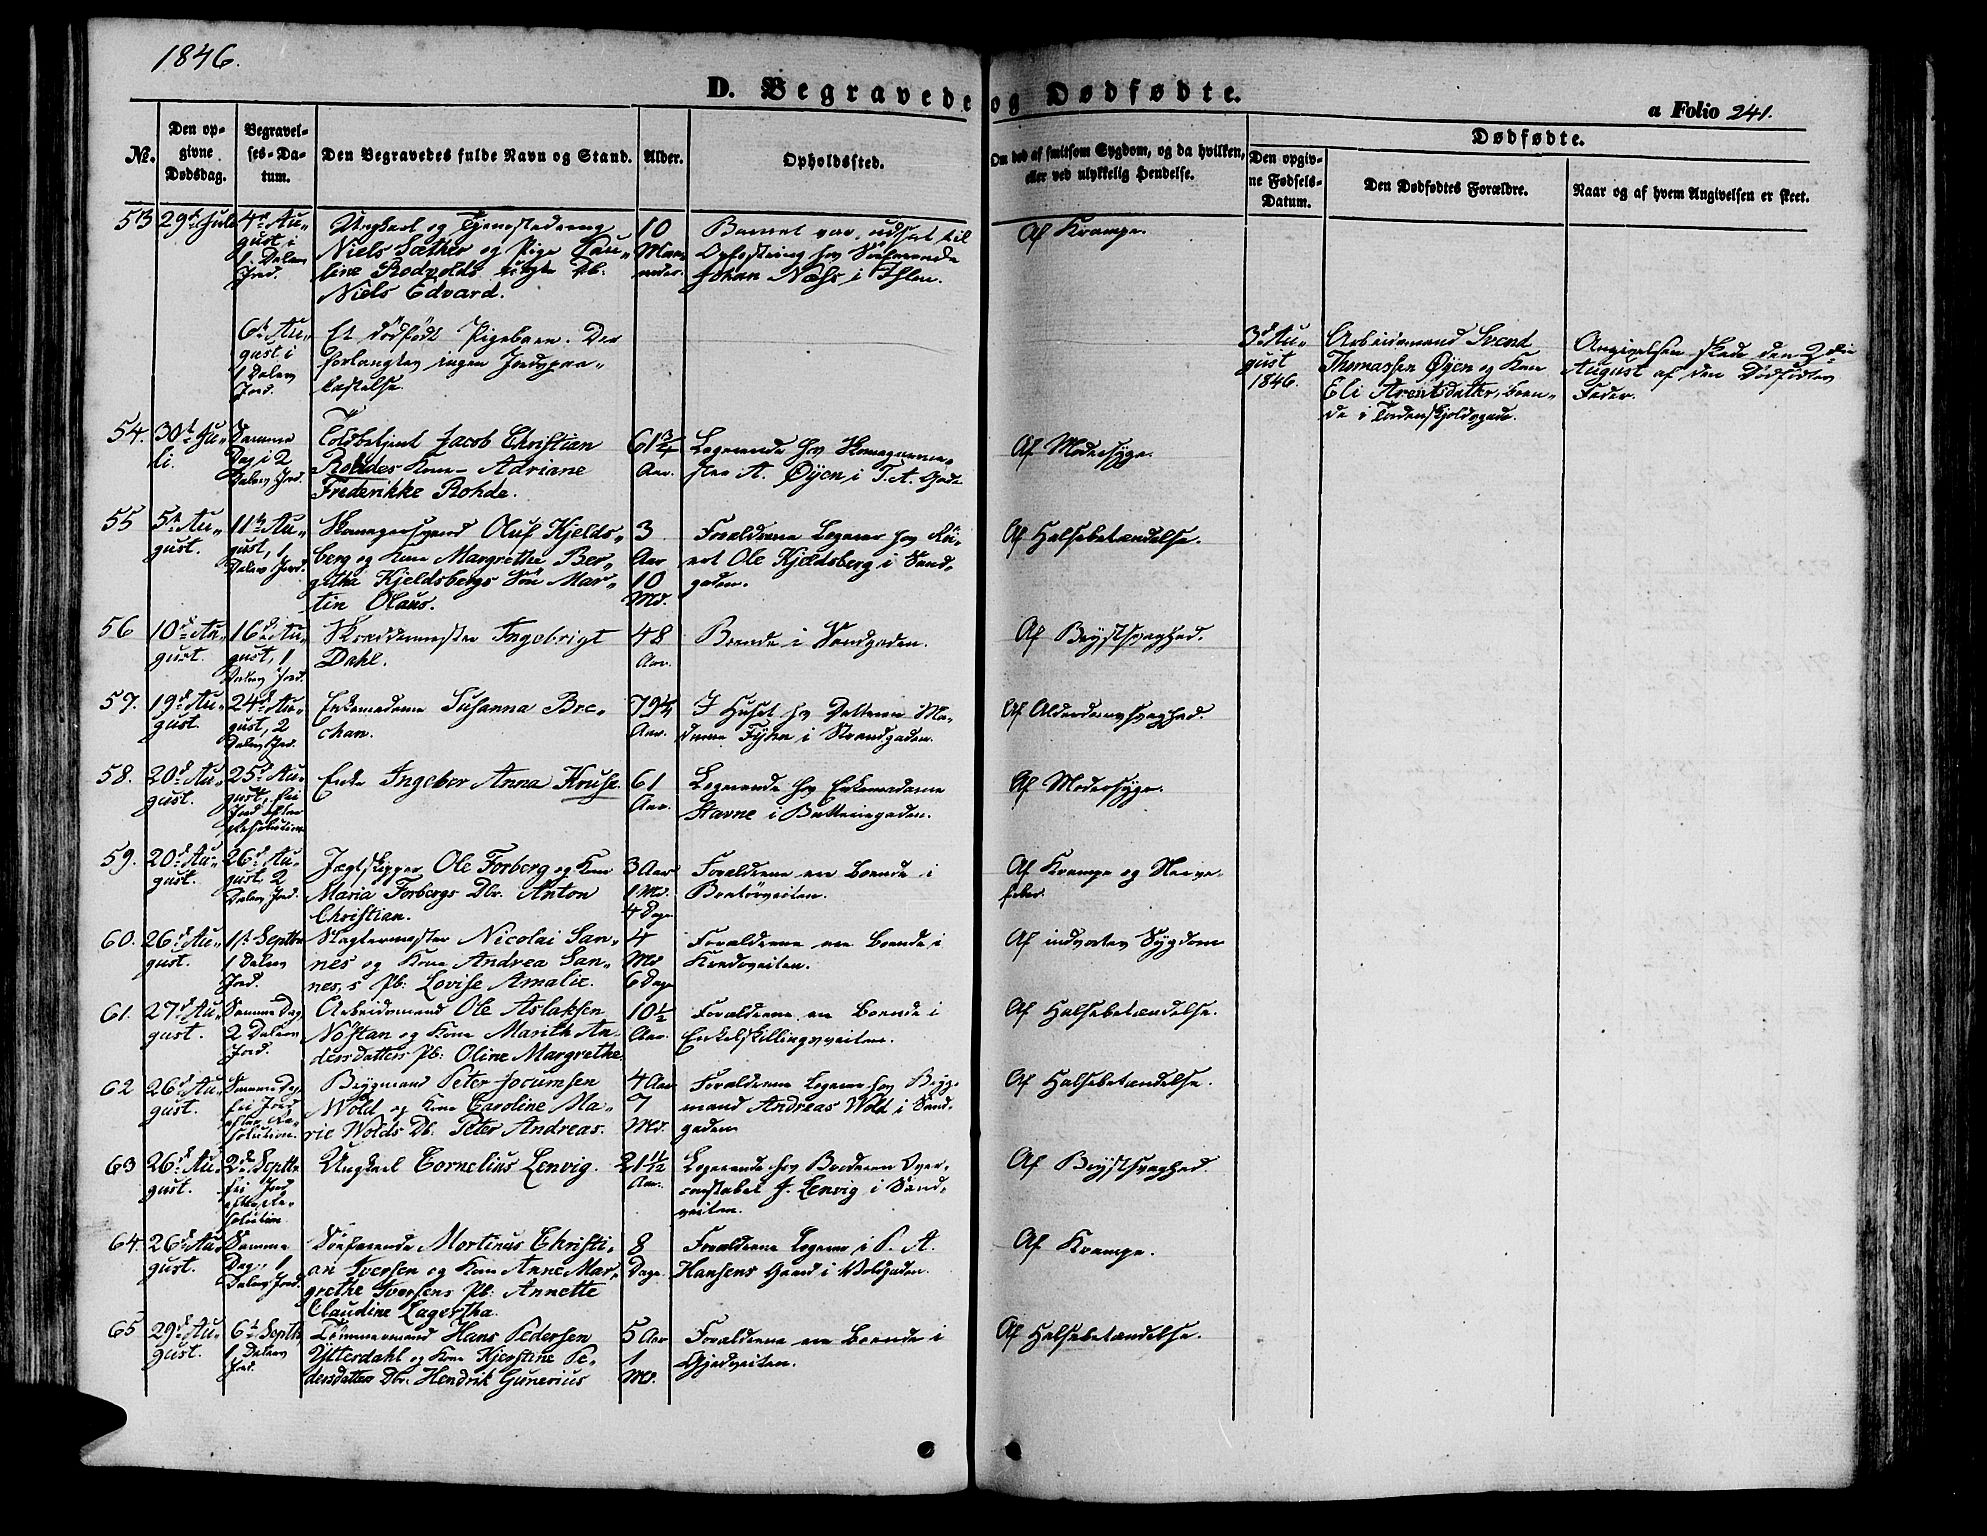 1846.
D. Begravede og Dødfødte.
a Folio 241.
No.
Den opgivne Dødsdag.
Begravelses-Datum.
Den Begravedes fulde Navn og Stand.
Alder.
Opholdssted.
Om død af smitsom Sygdom, og da hvilken, eller ved ulykkelig Hendelse.
Dødfødte.
Den opgivne Fødsels-Datum.
Den Dødfødtes Forældre.
Naar og af hvem Angivelsen er skeet.
53
29de Juli
4de Au-
gust i
1 Dalers
Jord.
Ungkarl og
Niels Sæther og Pige Pau-
line Rodvolds uægte Db.
Niels Edvard.
10
Maa-
neder.
Barnet var udsat til
Opfostring hos Søefarende
Johan Næss i Ihlen.
Af Krampe.
6te Au-
gust i
1 Dalers
Jord.
Et dødfødt Pigebarn. Der
forlangtes ingen Jordpaa-
kastelse.
3die Au-
gust
1846.
Arbeidsmand Svend
Thomassen Øyen og Kone
Eli Arentsdatter, boen-
de i Tordenskjoldsgade.
Angivelsen skede den
August af den Dødfødtes
Fader.
54.
30te Ju-
li.
Samme
Dag i 2
Dalers Jord.
Toldbetjent Jacob Christian
Rohdes Kone Adriane
Frederikke Rohde.
61 3/4
Aar.
Logerende hos Skomagerme-
ster A. Øyen i T. A. Gade
Af Modersyge.
55
5te Au-
gust.
11te Au-
gust, 1
Dalers Jord.
Skomagersvend Oluf Kjelds-
berg og Kone Margrethe Ber-
githa Kjeldsbergs Søn Mar-
tin Olaus.
3
Aar
10
Md.
Forældrene Logerer hos
Ole Kjeldsberg i Sand-
gaden.
Af Halsebetændelse.
56
10de Au-
gust.
16de Au-
gust, 1
Dalers Jord.
Skræddermester Ingebrigt
Dahl.
48
Aar.
Boende i Sandgaden.
Af Brystsvaghed.
57.
19de Au-
gust.
24de Au-
gust, 2
Dalers Jord.
Enkemadame Susanna Bre-
chan.
79
Aar.
I Huset hos Datteren Ma-
dame i Strandgaden.
Af Alderdomssvaghed.
58.
20de Au-
gust.
25de Au-
gust, fri
Jord efter
Resolution
Enke Ingeber Anna Kruse.
61
Aar.
Logerende hos Enkemadame
Stavne i Batteriegaden.
Af Modersyge.
59.
20de Au-
gust.
26de Au-
gust 2
Dalers Jord.
Jægtskipper Ole Forberg og Kone
Maria Forbergs Db. Anton
Christian.
3 Aar
1 Md.
4 Dage
Forældrene ere Boende i
Bratørveiten.
Af Krampe og Nerve-
feber.
60.
26de Au-
gust.
1te Septbr
1 Dalers
Jord.
Slagtermester Nicolai San-
nes og Kone Andrea San-
nes,s Pb: Lovise Amalie.
4
Md
6 Dage
Forældrene ere Boende i
Krodoveiten.
Af indvortes Sygdom
61.
27de Au-
gust.
Samme Dag
2 Dalers
Jord.
Arbeidsmand Ole Aslaksen
Nøstan og Kone Marith An-
dersdatters Pb: Oline Margrethe
10 1/2
Aar.
Forældrene ere Boende i
Enkelskillingsveiten.
Af Halsebetændelse.
62
26de Au-
gust.
Samme Dag
fri Jord
efter Re-
solution.
Brygmand Peter Jocumsen
Wold og Kone Caroline Ma-
rie Wolds Db. Peter Andreas.
4 Aar
7
Md.
Forældrene Logerer hos Bryg-
mand Andreas Wold i Sand-
gaden
Af Halsebetændelse.
63
26de Au-
gust.
2den Septbr
fri Jord
efter Re-
solution
Ungkarl Cornelius Lenvig.
21 11/12
Aar.
Logerende hos Broderen Over-
constabel J. Lenvig i Sand-
veiten.
Af Brystsvaghed.
64.
26de Au-
gust.
Samme
Dag, 1
Dalers Jord.
Søefarende Mortinus Christi-
an Iversen og Kone Anne Mar-
grethe Iversens Pb: Annette
Claudine Lagertha.
8
Dage
Forældrene Logerer i P. A.
Hansens Gaard i Voldgaden.
Af Krampe.
65
29de Au-
gust.
6te Septbr,
1 Dalers
Jord.
Tømmermand Hans Pedersen
Ytterdahl og Kone Kjerstine Pe-
dersdatters Db. Hendrik Gunerius
5 Aar
1
Md.
Forældrene ere Boende i
Gjedveiten.
Af Halsebetændelse.